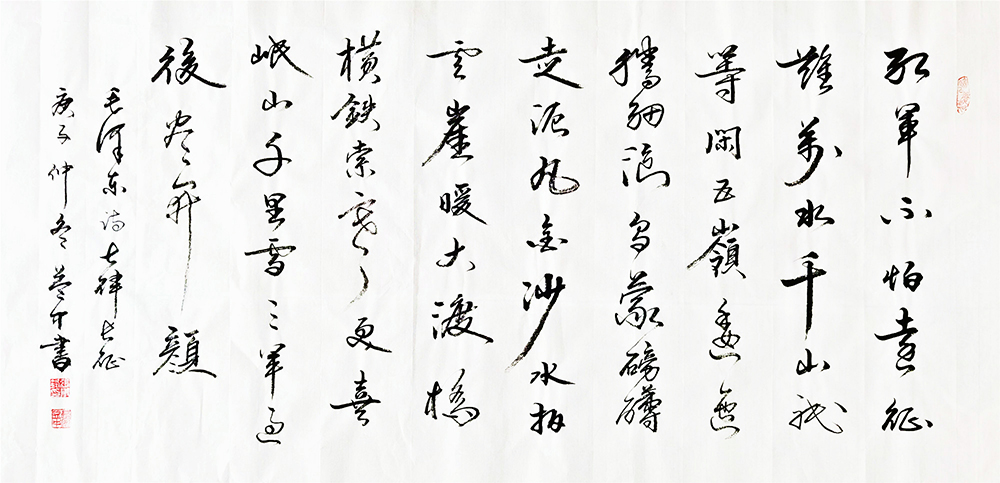 紅軍不怕遠征
難萬水千山祇
等閑五嶺逶迤
騰細浪烏蒙磅礴
走泥丸金沙水拍
雲崖暖大渡橋
橫鐵索寒更喜
岷山千里雪三軍過
後盡開顏
毛澤東詩七律長征
庚子仲冬書